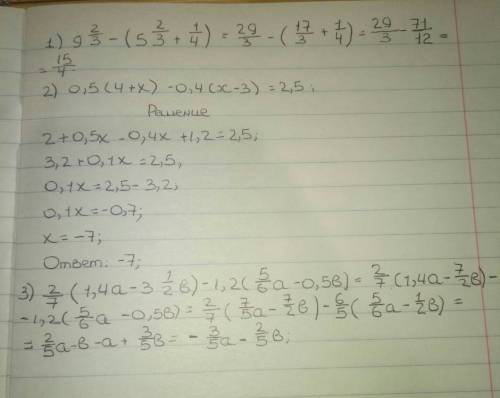 1) 9 2/3 - (5 2/3 + 1/4) = 29/3 - (17/3 + 1/4) = 29/3 - 71/12 =
= 15/4.
2) 0,5(4+x) - 0,4(x-3) = 2,5;
Решение
2+0,5x - 0,4x + 1,2 = 2,5;
3,2 + 0,1x = 2,5,
0,1x = 2,5 - 3,2;
0,1x = -0,7;
x = -7;
Ответ: -7;
3) 2/7 (1,4a - 3 1/2 в) - 1,2(5/6 a - 0,5в) = 2/7 (1,4a - 7/2 в) -
- 1,2(5/6 a - 0,5в) = 2/7 (7/5 a - 7/2 в) - 6/5 (5/6 a - 1/2 в) =
= 2/5 a - в - a + 3/5 в = - 3/5 a - 2/5 в;